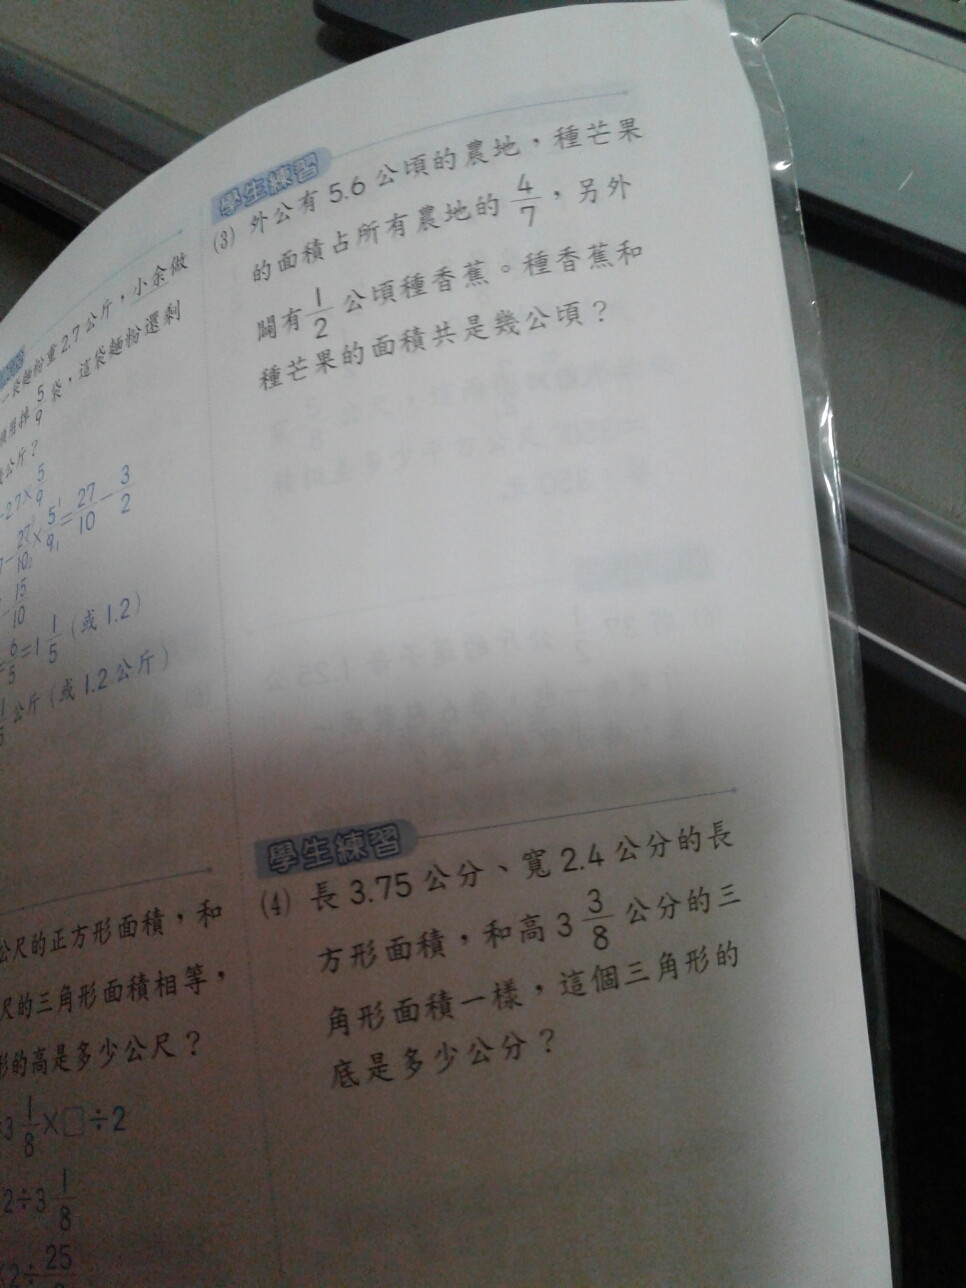 一袋麵粉重2.7公斤，小余做
用掉5/9袋，這袋麵粉還剩
公斤？
27/10-3/2
15/10
6/5=1 1/5(或1.2)
公斤(或1.2公斤)
學生練習
(3) 外公有5.6公頃的農地，種芒果
的面積占所有農地的4/7，另外
闢有1/2公頃種香蕉。種香蕉和
種芒果的面積共是幾公頃？
公尺的正方形面積，和
尺的三角形面積相等，
形的高是多少公尺？
3 1/8×□÷2
2÷3 1/8
2÷25
學生練習
(4) 長3.75公分、寬2.4公分的長
方形面積，和高3 3/8公分的三
角形面積一樣，這個三角形的
底是多少公分？